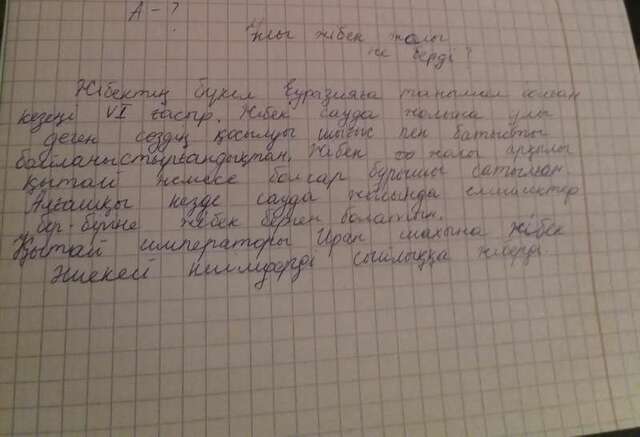 А - ?
Ұлы жібек жолы
не берді?
Жібектің бүкіл Еуразияға танымал болған
кезеңі VI ғасыр. Жібек сауда жолына ұлы
деген сөздің қосылуы шығыс пен батысты
байланыстырғандықтан. Жібек жолы арқылы
қытай немесе болгар бұрышы
Алғашқы кезде сауда жолында
бір-біріне жібек берген болатын.
Қытай императоры Иран шахына жібек
киімдерді сыйлыққа жіберді.